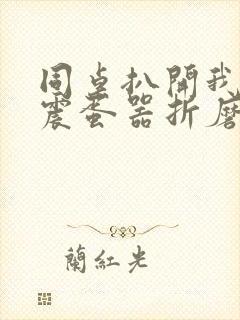 同桌扒開我
震蛋器折磨
蘭紅光